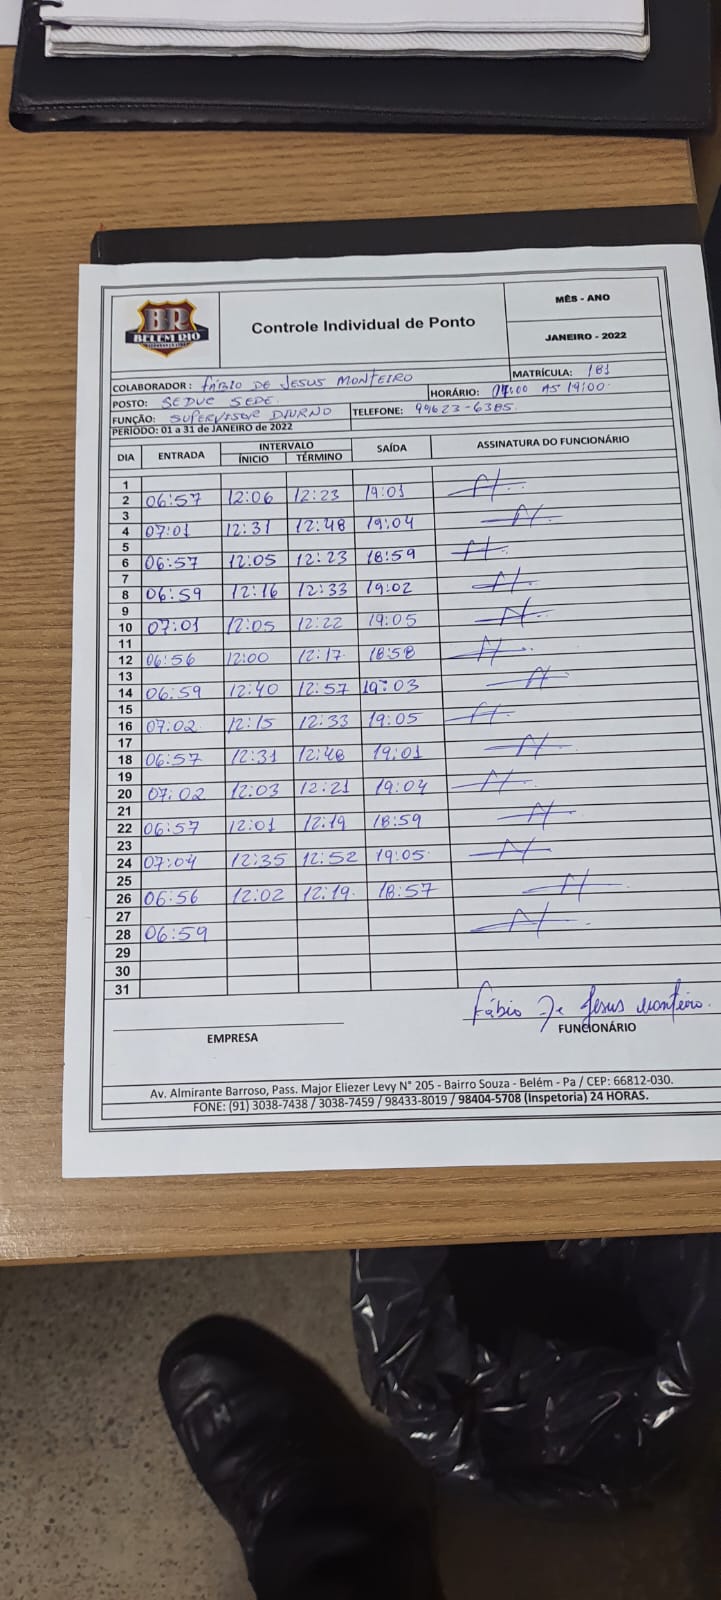 BR
BELÉM RIO
Controle Individual de Ponto
MÊS - ANO
JANEIRO - 2022
COLABORADOR : FÁBIO DE JESUS MONTEIRO
MATRÍCULA: 181
POSTO: SEDUC SEDE
HORÁRIO: 07:00 AS 19:00
FUNÇÃO: SUPERVISOR DIURNO
TELEFONE: 99623-6385
PERÍODO: 01 a 31 de JANEIRO de 2022
DIA ENTRADA INTERVALO SAÍDA ASSINATURA DO FUNCIONÁRIO
ÍNICIO TÉRMINO
1
2 06:57 12:06 12:23 19:01
3
4 07:01 12:31 12:48 19:04
5
6 06:57 12:05 12:23 18:59
7
8 06:59 12:16 12:33 19:02
9
10 07:01 12:05 12:22 19:05
11
12 06:56 12:00 12:17 18:58
13
14 06:59 12:40 12:57 19:03
15
16 07:02 12:15 12:33 19:05
17
18 06:57 12:31 12:48 19:01
19
20 07:02 12:03 12:21 19:04
21
22 06:57 12:01 12:19 18:59
23
24 07:04 12:35 12:52 19:05
25
26 06:56 12:02 12:19 18:57
27
28 06:59
29
30
31
Fábio De Jesus Monteiro
EMPRESA FUNCIONÁRIO
Av. Almirante Barroso, Pass. Major Eliezer Levy N° 205 - Bairro Souza - Belém - Pa / CEP: 66812-030.
FONE: (91) 3038-7438 / 3038-7459 / 98433-8019 / 98404-5708 (Inspetoria) 24 HORAS.